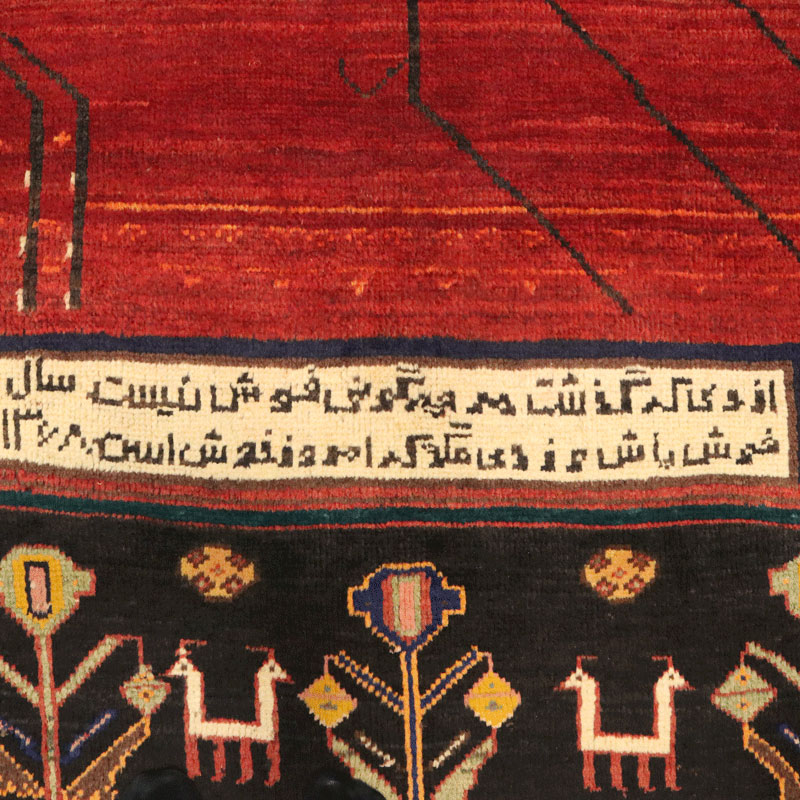 از دی که گذشت هر چه گوئی خوش نیست سال
خوش باش و ز دی مگو که امروز خوش است ۱۳۷۸